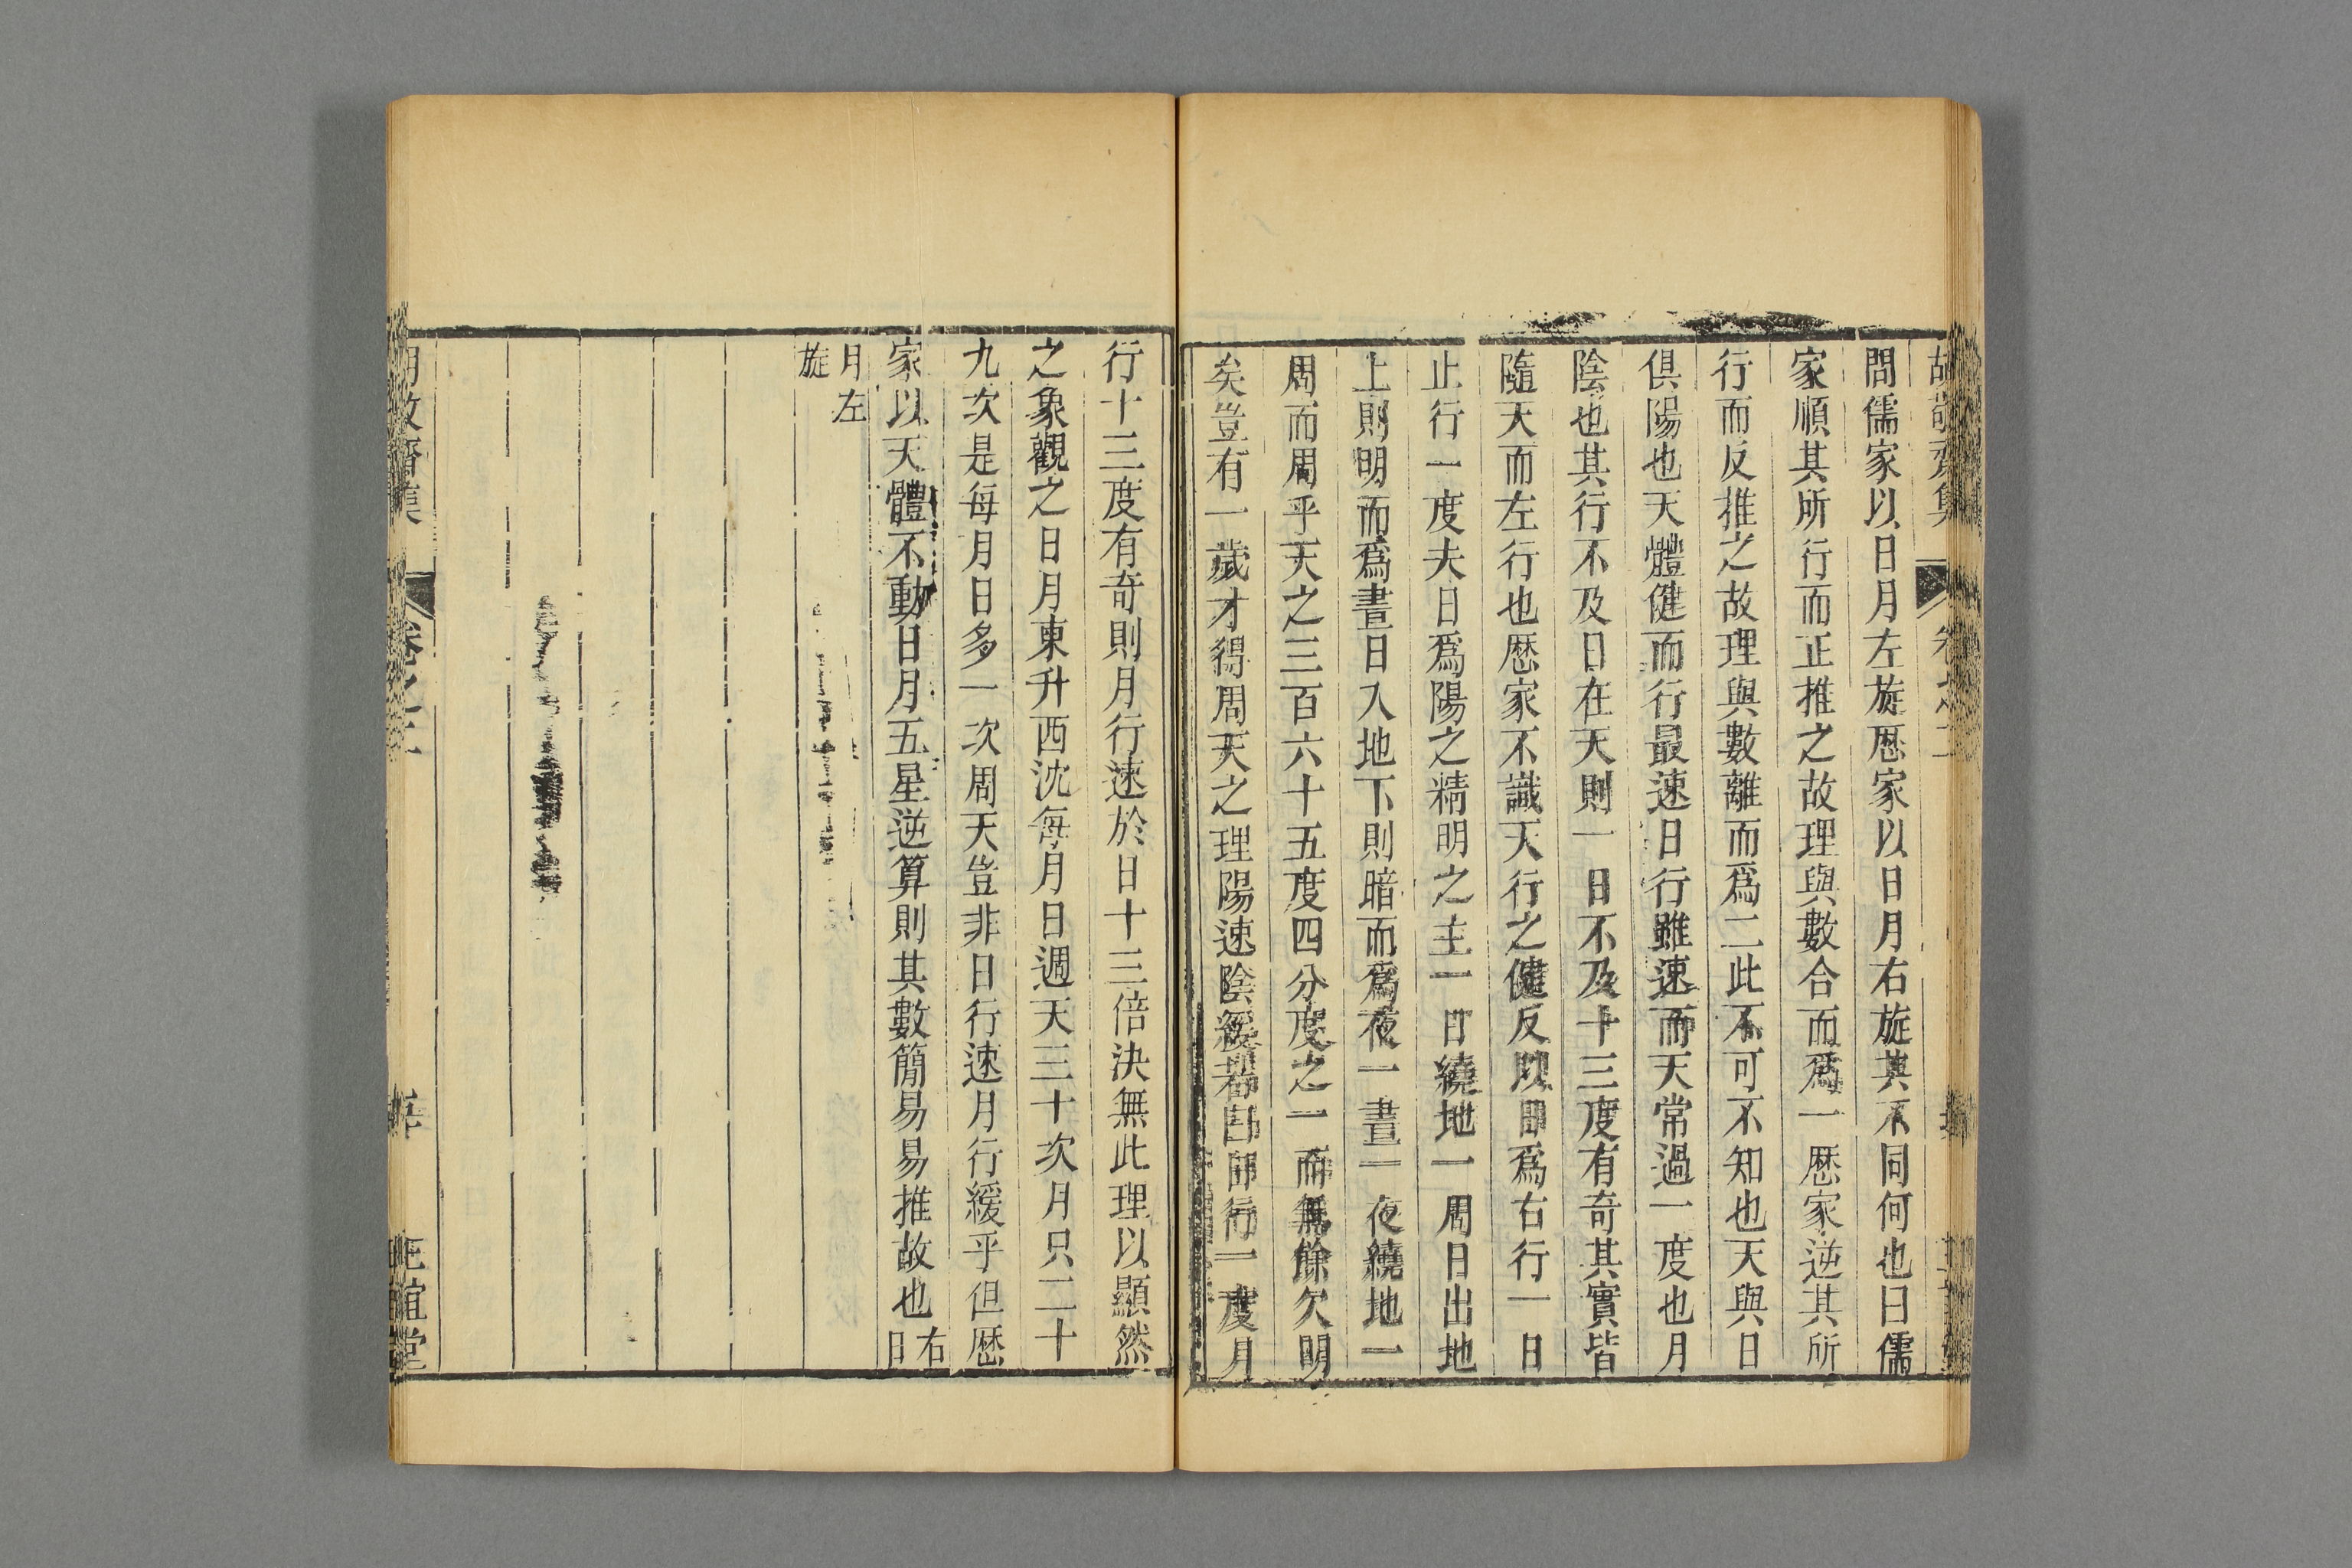 問儒家以日月左旋厯家以日月右旋其不同何也曰儒
家順其所行而正推之故理與數合而爲一厯家逆其所
行而反推之故理與數離而爲二此不可不知也天與日
俱陽也天體健而行最速日行雖速而天常過一度也月
陰也其行不及日在天則一日不及十三度有奇其實皆
隨天而左行也厯家不識天行之健反以日爲右行一日
止行一度夫日爲陽之精明之主一日繞地一周日出地
上則明而爲晝日入地下則暗而爲夜一晝一夜繞地一
周而周乎天之三百六十五度四分度之一而無餘欠明
矣豈有一歲才得周天之理陽速陰緩若曰日行一度月
行十三度有奇則月行速於日十三倍決無此理以顯然
之象觀之日月東升西沈每月日週天三十次月只二十
九次是每月日多一次周天豈非日行速月行緩乎但厯
家以天體不動日月五星逆算則其數簡易易推故也右日
月左旋
胡敬齋集
卷之二
正誼堂